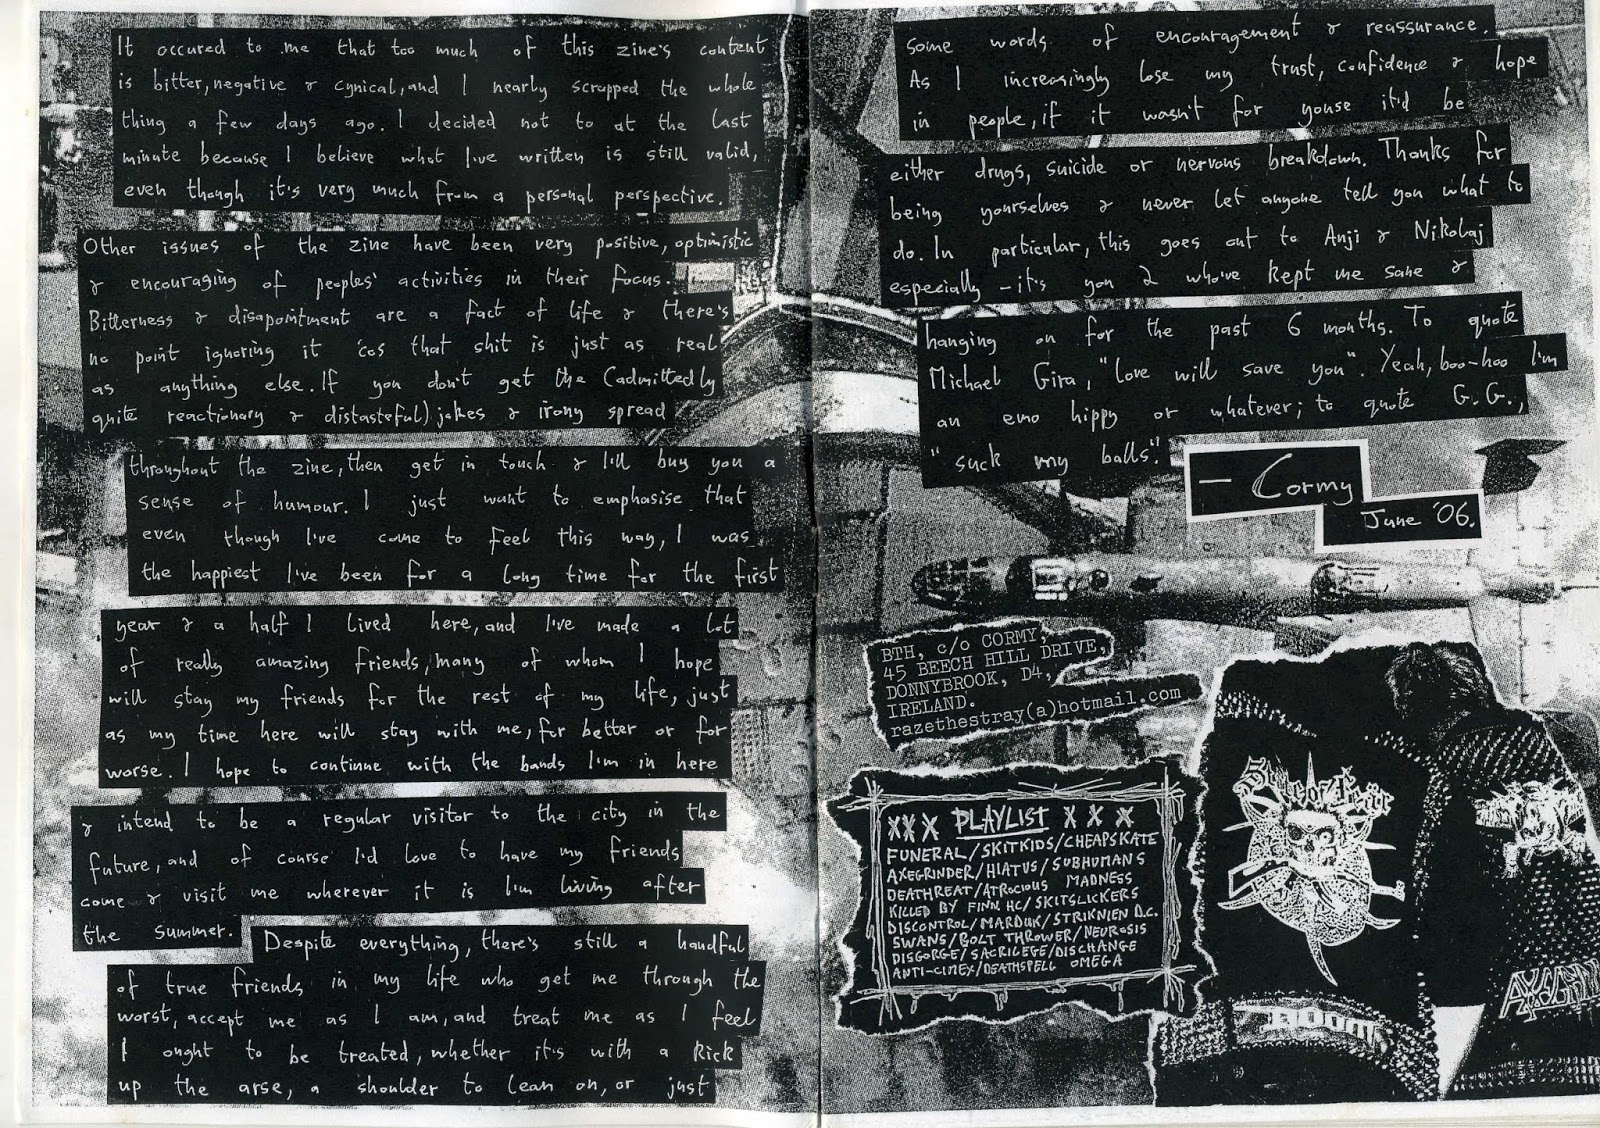 It occured to me that too much of this zine's content
is bitter, negative & cynical, and I nearly scrapped the whole
thing a few days ago. I decided not to at the last
minute because I believe what I've written is still valid,
even though it's very much from a personal perspective.
Other issues of the zine have been very positive, optimistic
& encouraging of peoples' activities in their focus.
Bitterness & disapointment are a fact of life & there's
no point ignoring it 'cos that shit is just as real
as anything else. If you don't get the (admittedly
quite reactionary & distasteful) jokes & irony spread
throughout the zine, then get in touch & I'll buy you a
sense of humour. I just want to emphasise that
even though I've come to feel this way, I was
the happiest I've been for a long time for the first
year & a half I lived here, and I've made a lot
of really amazing friends, many of whom I hope
will stay my friends for the rest of my life, just
as my time here will stay with me, for better or for
worse. I hope to continue with the bands I'm in here
& intend to be a regular visitor to the city in the
future, and of course I'd love to have my friends
come & visit me wherever it is I'm living after
the summer. Despite everything, there's still a handful
of true friends in my life who get me through the
worst, accept me as I am, and treat me as I feel
I ought to be treated, whether it's with a kick
up the arse, a shoulder to lean on, or just
some words of encouragement & reassurance.
As I increasingly lose my trust, confidence & hope
in people, if it wasn't for youse it'd be
either drugs, suicide or nervous breakdown. Thanks for
being yourselves & never let anyone tell you what to
do. In particular, this goes out to Anji & Nikolaj
especially - it's you 2 who've kept me sane &
hanging on for the past 6 months. To quote
Michael Gira, "love will save you". Yeah, boo-hoo I'm
an emo hippy or whatever; to quote G.G.,
"suck my balls."
— Cormy
June '06.
BTH, c/o CORMY,
45 BEECH HILL DRIVE,
DONNYBROOK, D4,
IRELAND.
razethestray(a)hotmail.com
XXX PLAYLIST XXX
FUNERAL/SKITKIDS/CHEAPSKATE
AXEGRINDER/HIATUS/SUBHUMANS
DEATHREAT/ATROCIOUS MADNESS
KILLED BY FINN HC/SKITSLICKERS
DISCONTROL/MARDUK/STRIKNIEN D.C.
SWANS/BOLT THROWER/NEUROSIS
DISGORGE/SACRILEGE/DISCHANGE
ANTI-CIMEX/DEATHSPELL OMEGA
DOOM